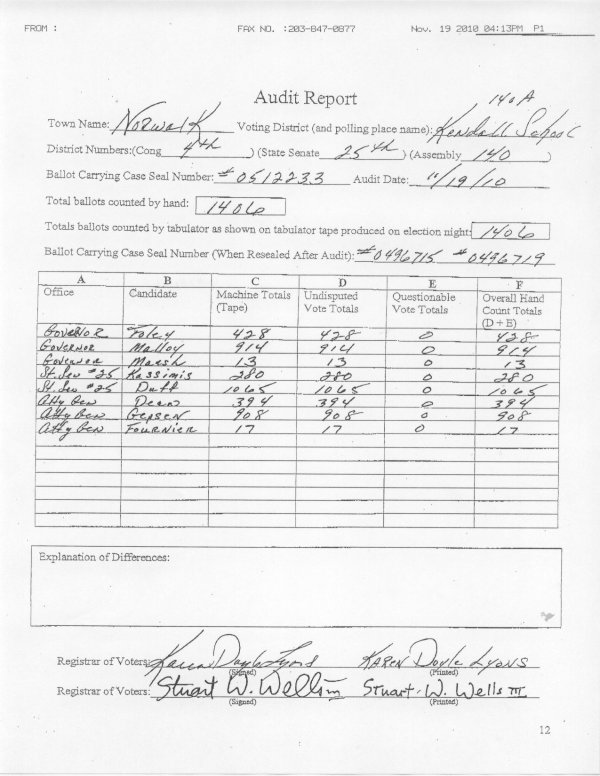 FROM : FAX NO. :203-847-0877 Nov. 19 2010 04:13PM P1
Audit Report
140 A
Town Name: Norwalk Voting District (and polling place name): Kendall School
District Numbers:(Cong 4th ) (State Senate 25th ) (Assembly 140 )
Ballot Carrying Case Seal Number: #0512233 Audit Date: 11/19/10
Total ballots counted by hand: 1406
Totals ballots counted by tabulator as shown on tabulator tape produced on election night: 1406
Ballot Carrying Case Seal Number (When Resealed After Audit): #0496715 #0496719
A B C D E F
Office Candidate Machine Totals (Tape) Undisputed Vote Totals Questionable Vote Totals Overall Hand Count Totals (D + E)
Governor Foley 428 428 0 428
Governor Malloy 914 914 0 914
Governor Marsh 13 13 0 13
St. Sen #25 Kassimis 280 280 0 280
St. Sen #25 Duff 1065 1065 0 1065
Atty Gen Dean 394 394 0 394
Atty Gen Gepsen 908 908 0 908
Atty Gen Fournier 17 17 0 17
Explanation of Differences:
Registrar of Voters: Karen Doyle Lyons KAREN Doyle LYONS
(Signed) (Printed)
Registrar of Voters: Stuart W. Wells III Stuart W. Wells III
(Signed) (Printed)
12